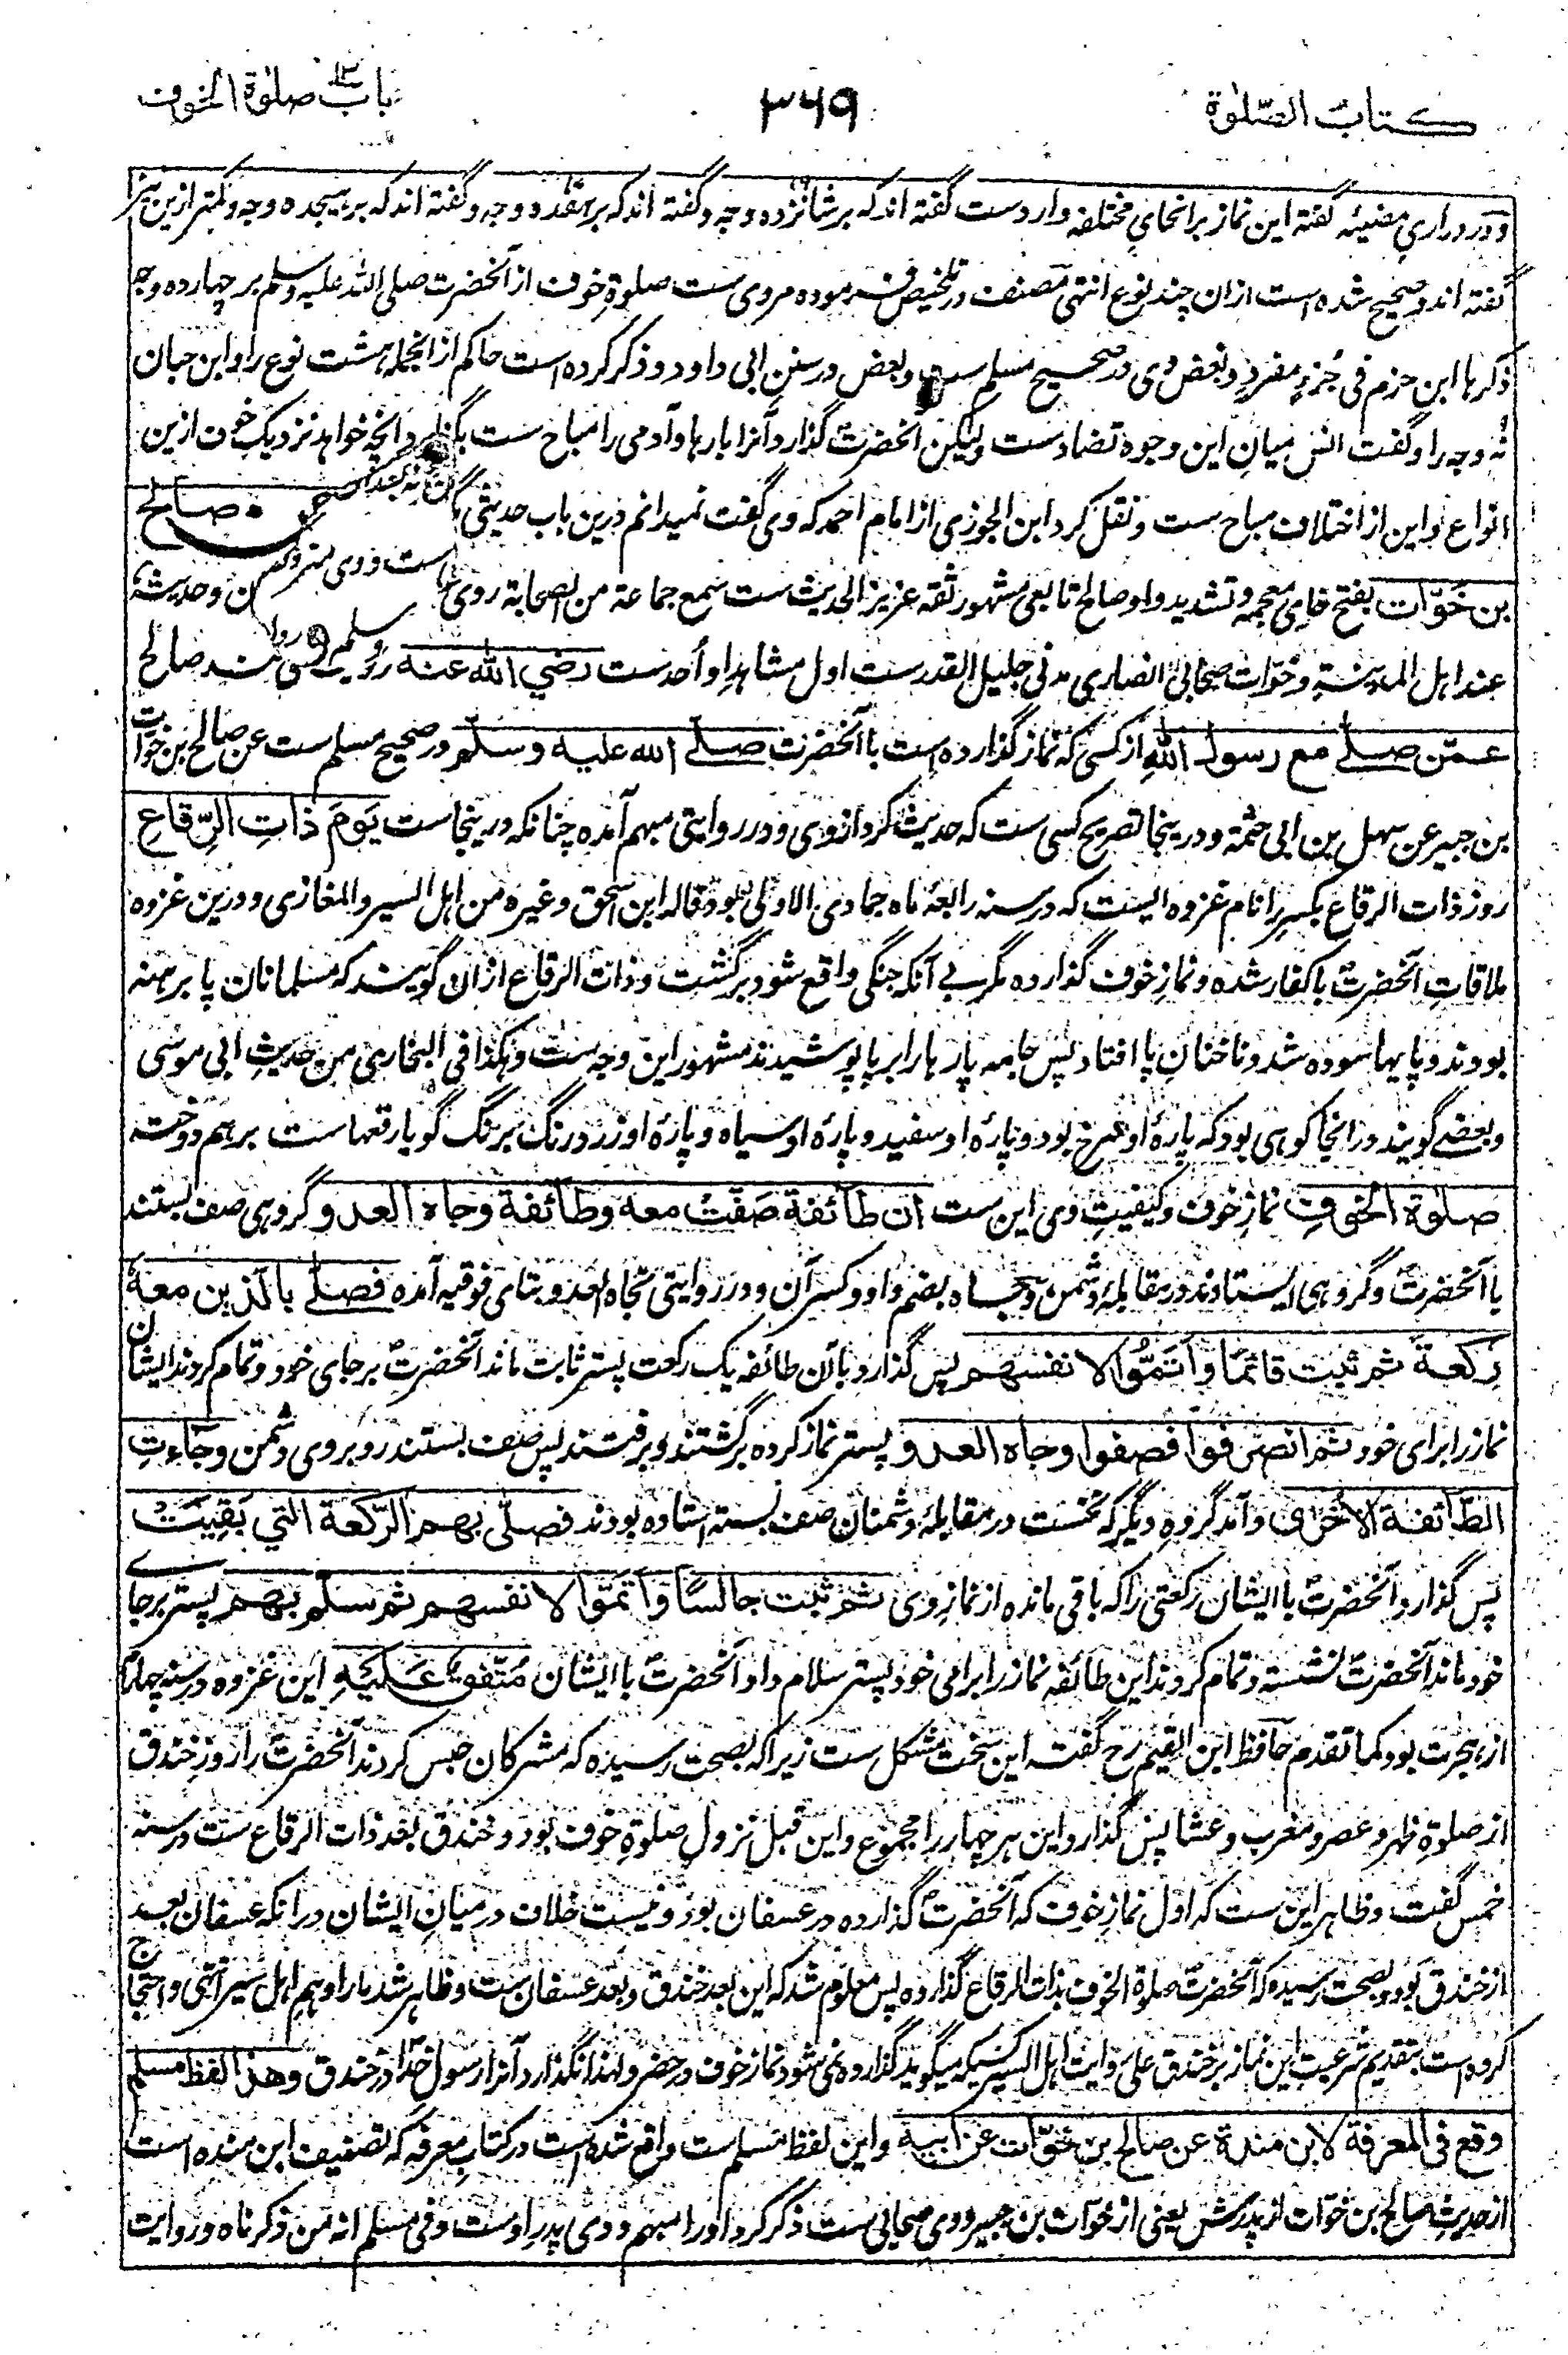 كتاب الصّلوٰة
٣٤٩
باب ١٣ صلوٰة الخوف
و در دراری مضیئه گفته این نماز بر انحای مختلفه وارد ست گفته اند که بر شانزده وجه و گفته اند که بر هفده وجه و گفته اند که بر هیجده وجه و کمتر ازین نیز
گفته اند و صحیح شده است ازان چند نوع انتهی مصنف در تلخیص فرموده مروی ست صلوة خوف از آنحضرت صلی الله علیه وسلم بر چهارده وجه
ذکرها ابن حزم فی جزءٍ مفردٍ و بعض وی در صحیح مسلم ست و بعض در سنن ابی داود و ذکر کرده است حاکم ازانجمله هشت نوع را و ابن حبان
نُه وجه را و گفت انس میان این وجوه تضاد ست ولیکن آنحضرتؐ گذارد آنرا بارها و آدمی را مباح ست بگذارد آنچه خواهد نزدیک خوف ازین
انواع و این از اختلاف مباح ست و نقل کرد ابن الجوزی از امام احمد که وی گفت نمیدانم درین باب حدیثی مگر صحیح صالح
بن خَوّات بفتح خای معجمه و تشدید واو صالح تابعی مشهور ثقه عزیز الحدیث ست سمع جماعة من الصحابة روی است و حدیثه
عند اهل المدینة و خوّات صحابی انصاری مدنی جلیل القدر ست اول مشاهد او أحد ست رضي الله عنه صالح
عمّن صلّے مع رسول اللهِ از کسی که نماز گذارده است با آنحضرت صلّے الله علیه وسلّم در صحیح مسلم ست عن صالح بن خوات
بن جبیر عن سهل بن ابی حثمة و درینجا تصریح کسی ست که حدیث کرد ازوی و در روایتی مبهم آمده چنانکه درینجاست یَومَ ذاتِ الرِّقاع
روز ذات الرقاع بکسرِ را نام غزوه ایست که در سنه رابعه ماه جمادی الاولی بود قاله ابن اسحق وغیره من اهل السیر والمغازی و درین غزوه
ملاقاتِ آنحضرتؐ با کفار شده و نمازِ خوف گذارده مگر بے آنکه جنگی واقع شود برگشت و ذات الرقاع ازان گویند که مسلمانان پا برهنه
بودند و پایها سوده شد و ناخنانِ پا افتاد پس جامه پارها را بر پا پوشیدند مشهور این وجه ست و هکذا فی البخاری من حدیثِ ابی موسی
و بعضے گویند در انجا کوهی بود که پارهٔ او سرخ بود و پارهٔ او سفید و پارهٔ او سیاه و پارهٔ او زرد رنگ برنگ گویا رقعهاست برهم دوخته
صلوٰة الخوفِ نمازِ خوف و کیفیتِ وی این ست ان طآئفة صَفّتْ معه وطآئفة وجاه العدو گروهی صف بستند
با آنحضرتؐ و گروهی ایستادند در مقابلهٔ دشمن وجاه بضم واو و کسر آن و در روایتی تجاه العدو بتای فوقیه آمده فصلّے بالذین معهٗ
رکعةً ثم ثبت قائمًا واَتَمُّوا لانفسهم پس گذارد با آن طائفه یک رکعت پستر ثابت ماند آنحضرتؐ بر جای خود و تمام کردند ایشان
نماز را برای خود ثم انصرفوا فصفوا وجاه العدو پستر نماز کرده برگشتند و برفتند پس صف بستند روبروی دشمن وجاءتِ
الطّآئفة الاُخرٰی و آمد گروه دیگر که نخست در مقابلهٔ دشمنان صف بسته استاده بودند فصلّی بهم الرّکعة التي بَقِیَتْ
پس گذارد آنحضرتؐ با ایشان رکعتی را که باقی مانده از نمازِ وی ثم ثبت جالسًا واَتَمّوا لانفسهم ثم سلّم بهم پستر بر جای
خود ماند آنحضرتؐ نشسته و تمام کردند این طائفه نماز را برای خود پستر سلام داد آنحضرتؐ با ایشان مُتّفقٌ عَلَیْهِ این غزوه در سنه چهارم
از هجرت بود کما تقدم حافظ ابن القیم رح گفته این سخت مشکل ست زیرا که بصحت رسیده که مشرکان حبس کردند آنحضرتؐ را روزِ خندق
از صلوةِ ظهر و عصر و مغرب و عشا پس گذارد این هر چهار را مجموع و این قبل نزولِ صلوةِ خوف بود و خندق بعد ذات الرقاع ست در سنه
خمس گفت و ظاهر این ست که اول نمازِ خوف که آنحضرتؐ گذارده در عسفان بود و نیست خلاف در میان ایشان در انکه عسفان بعد
از خندق بود و بصحت رسیده که آنحضرتؐ صلوة الخوف بذات الرقاع گذارده پس معلوم شد که این بعد خندق و بعد عسفان ست و ظاهر شد مارا وهم اهل سیر انتهی و احتجاج
کرده است بتقدیم شرعیت این نماز بر خندق علی روایت اهل السیر کسیکه میگوید گذارده نمی شود نماز خوف در حضر ولهذا نگذارد آنرا رسول خداؐ در خندق وهذا لفظ مسلم
وقع فی المعرفة لابن مندة عن صالح بن خوّات عن ابیه و این لفظ مسلم ست واقع شده است در کتاب معرفه که تصنیف ابن منده است
از حدیثِ صالح بن خوّات از پدرش یعنی از خوّات بن جبیر و وی صحابی ست ذکر کرد او را مبهم و وی پدرِ اوست و فی مسلم انه من ذکرناه و روایت